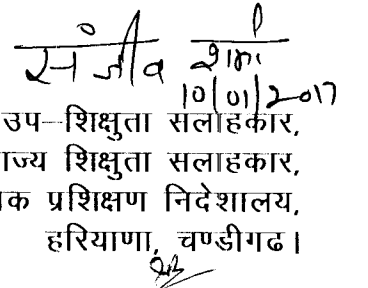 संजीव शर्मा
10/01/2017
उप-शिक्षुता सलाहकार,
ाज्य शिक्षुता सलाहकार,
क प्रशिक्षण निदेशालय,
हरियाणा, चण्डीगढ।